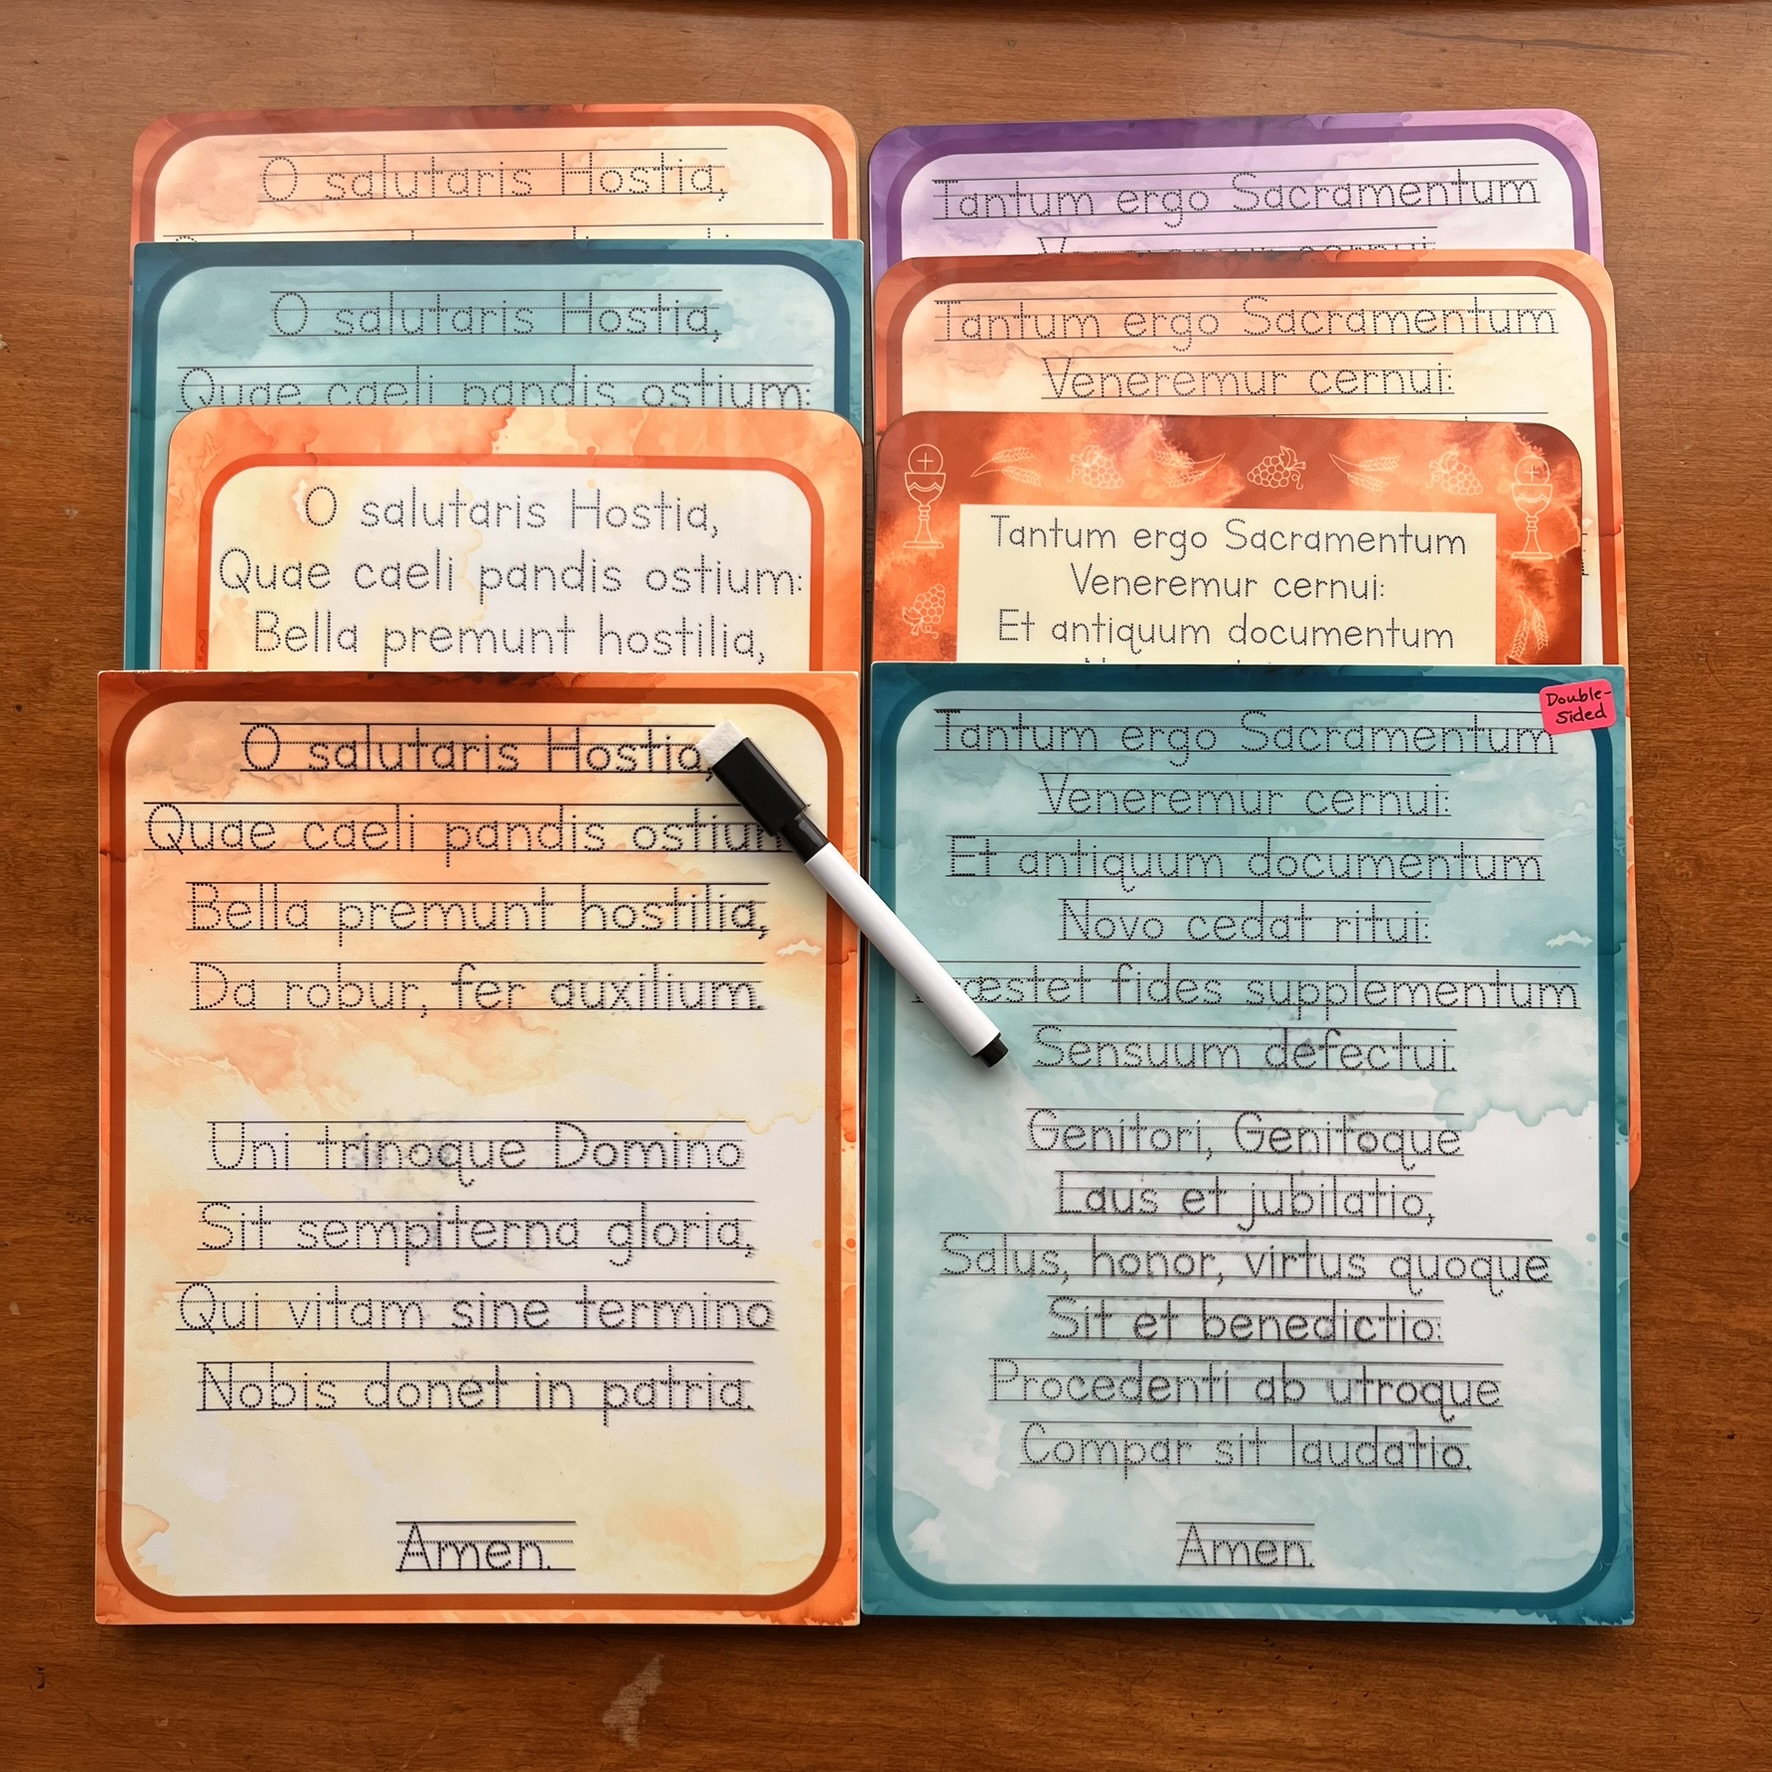 O salutaris Hostia,
O salutaris Hostia,
Quae caeli pandis ostium:
O salutaris Hostia,
Quae caeli pandis ostium:
Bella premunt hostilia,
O salutaris Hostia,
Quae caeli pandis
Bella premunt hostilia,
Da robur, fer auxilium.
Uni trinoque Domino
Sit sempiterna gloria,
Qui vitam sine termino
Nobis donet in patria.
Amen.
Tantum ergo Sacramentum
Veneremur cernui:
Tantum ergo Sacramentum
Veneremur cernui:
Tantum ergo Sacramentum
Veneremur cernui:
Et antiquum documentum
Double-
Sided
Tantum ergo Sacramentum
Veneremur cernui:
Et antiquum documentum
Novo cedat ritui:
fides supplementum
Sensuum defectui.
Genitori, Genitoque
Laus et jubilatio,
Salus, honor, virtus quoque
Sit et benedictio:
Procedenti ab utroque
Compar sit laudatio.
Amen.